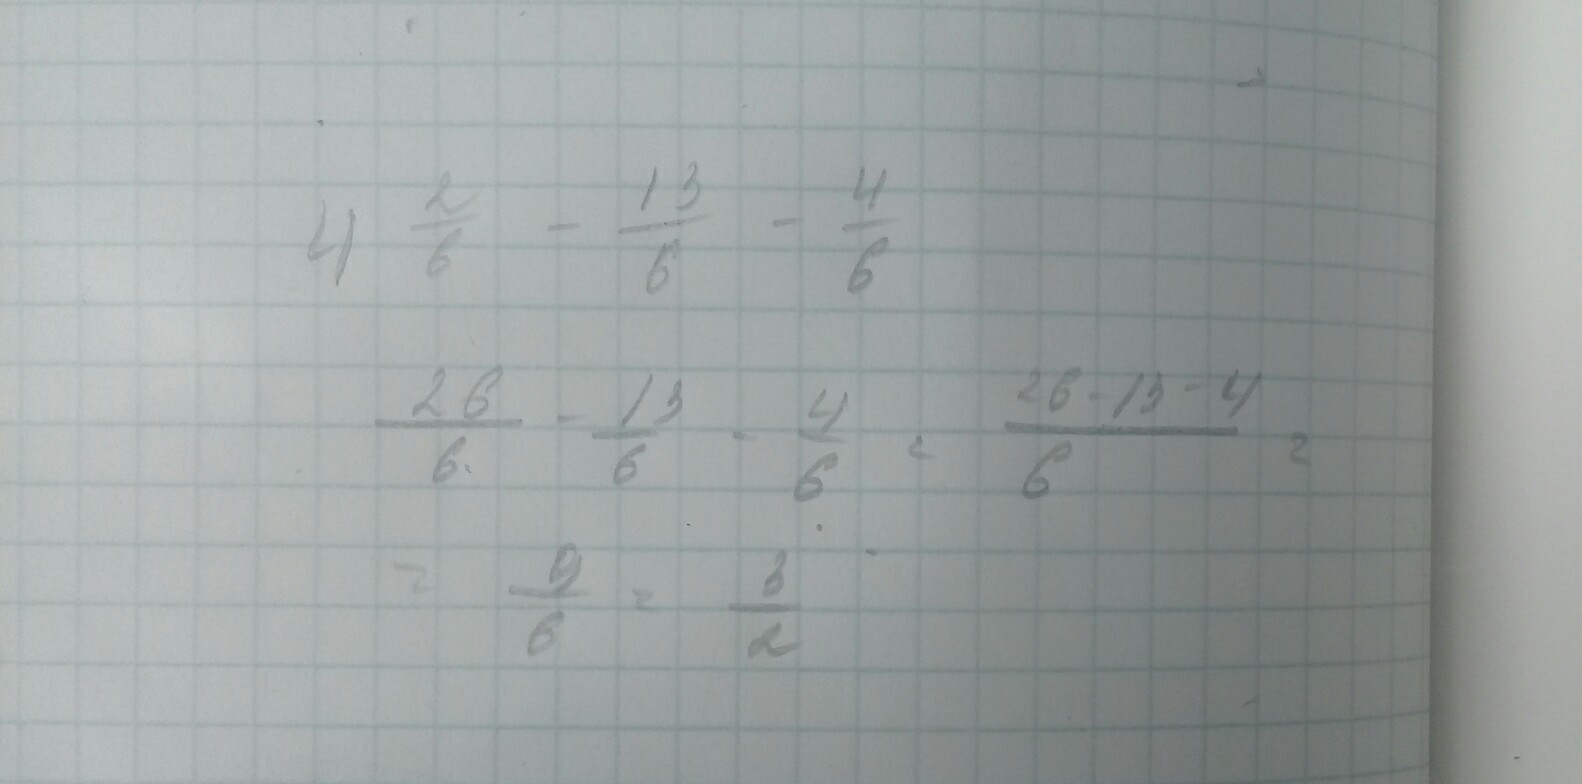 4 2/6 - 13/6 - 4/6
26/6 - 13/6 - 4/6 = 26-13-4/6 =
= 9/6 = 3/2